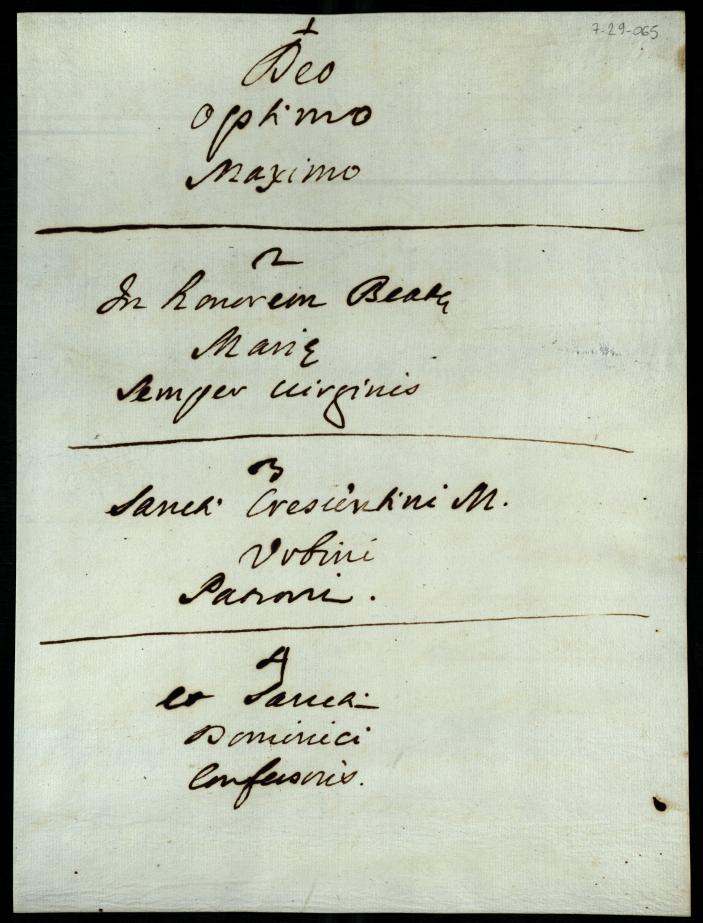 7-29-065
1
Deo
Optimo
Maximo
2
In honorem Beatę
Marię
Semper uirginis
3
Sancti Crescentini M.
Vrbini
Patroni.
4
et Sancti
Dominici
Confessoris.